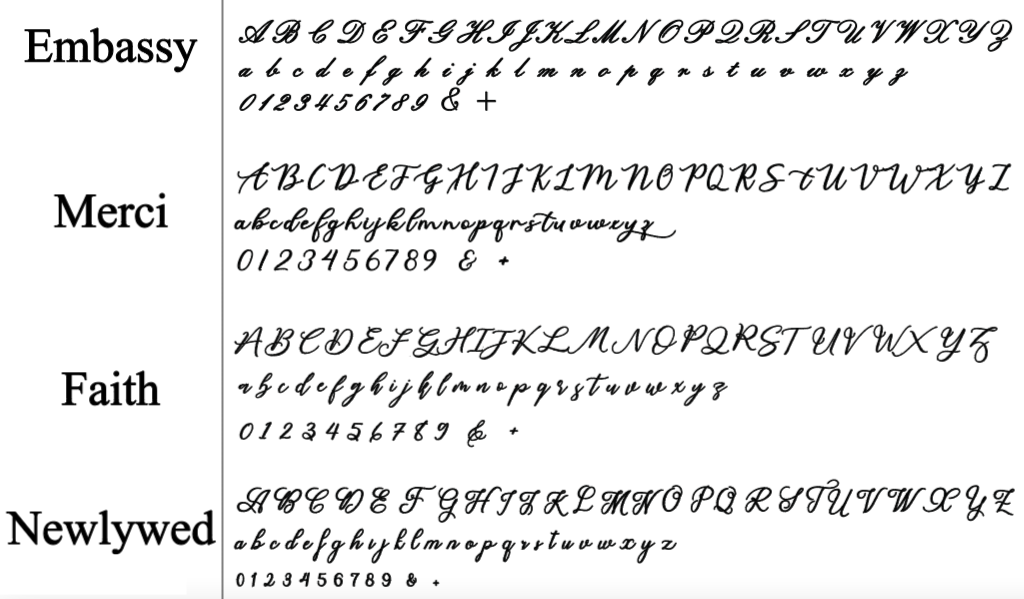 Embassy
A B C D E F G H I J K L M N O P Q R S T U V W X Y Z
a b c d e f g h i j k l m n o p q r s t u v w x y z
0 1 2 3 4 5 6 7 8 9 & +
Merci
A B C D E F G H I J K L M N O P Q R S T U V W X Y Z
a b c d e f g h i j k l m n o p q r s t u v w x y z
0 1 2 3 4 5 6 7 8 9 & +
Faith
A B C D E F G H I J K L M N O P Q R S T U V W X Y Z
a b c d e f g h i j k l m n o p q r s t u v w x y z
0 1 2 3 4 5 6 7 8 9 & +
Newlywed
A B C D E F G H I J K L M N O P Q R S T U V W X Y Z
a b c d e f g h i j k l m n o p q r s t u v w x y z
0 1 2 3 4 5 6 7 8 9 & +